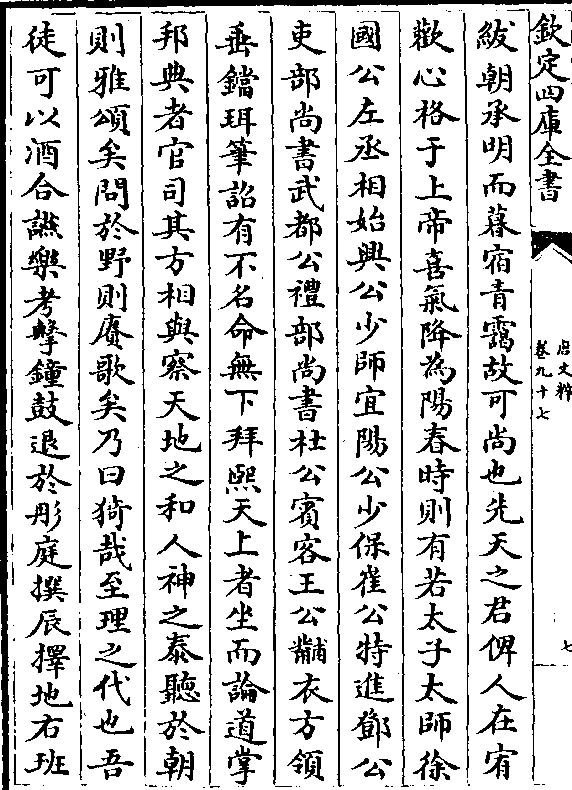 欽定四庫全書
唐文粹
卷九十七
七
紱朝承明而暮宿青靄故可尚也先天之君俾人在宥
歡心格于上帝喜氣降為陽春時則有若太子太師徐
國公左丞相始興公少師宜陽公少保崔公特進鄧公
吏部尚書武都公禮部尚書杜公賓客王公黼衣方領
垂鐺珥筆詔有不名命無下拜熙天上者坐而論道掌
邦典者官司其方相與察天地之和人神之泰聽於朝
則雅頌矣問於野則賡歌矣乃曰猗哉至理之代也吾
徒可以酒合讌樂考擊鐘鼓退於彤庭撰辰擇地右班